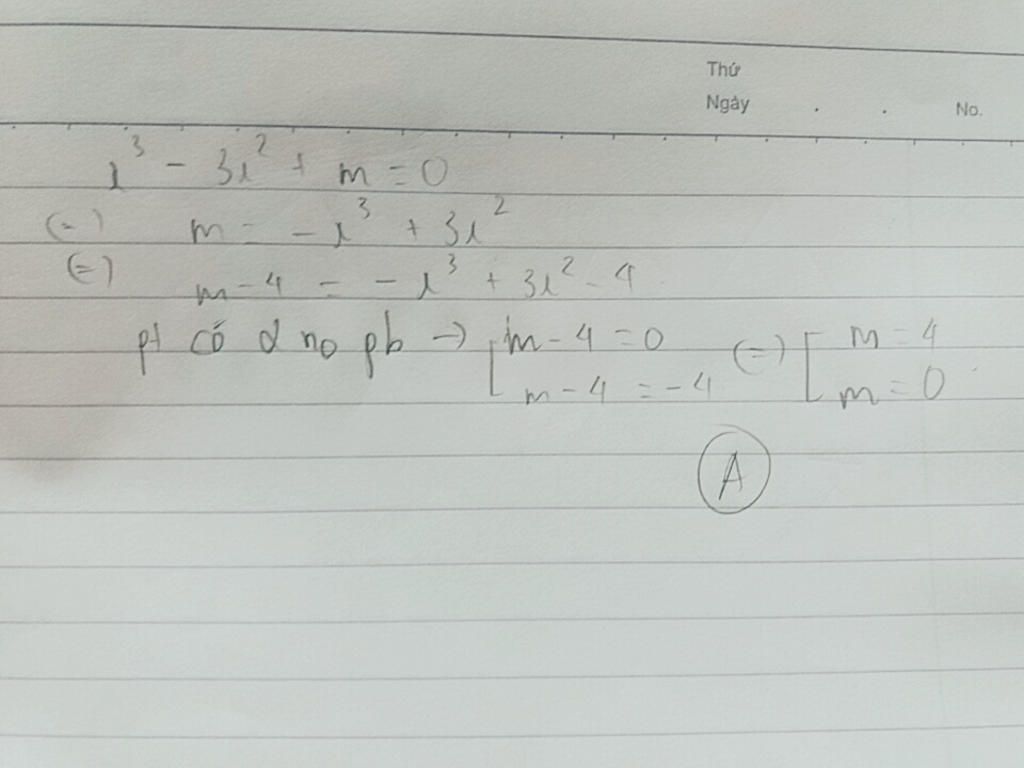 Thứ
Ngày . . No.
x³ - 3x² + m = 0
(=) m = -x³ + 3x²
(=) m - 4 = -x³ + 3x² - 4
pt có 2 no pb → [ m - 4 = 0 (=) [ m = 4
m - 4 = -4 m = 0
A